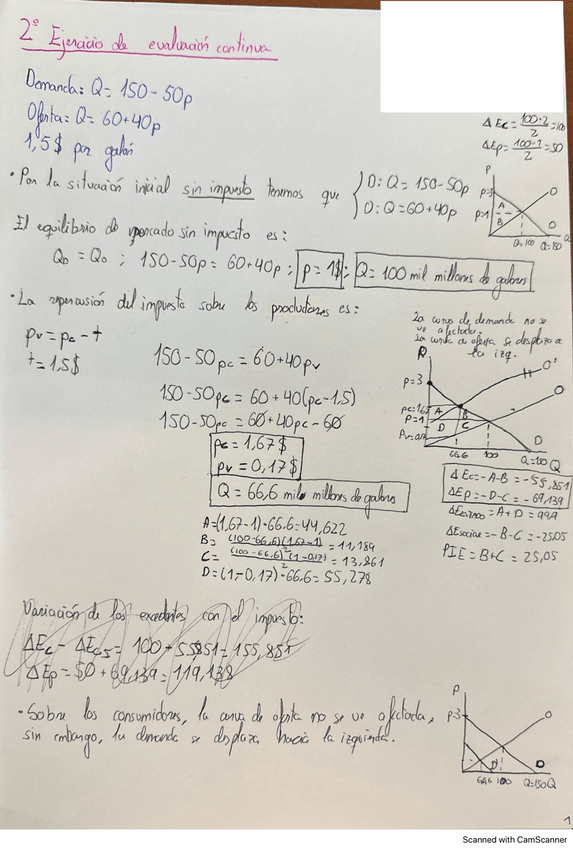 2º Ejercicio de evaluación continua
Demanda: Q = 150 - 50p
Oferta: Q = 60 + 40p
1,5$ por galón
ΔEc = 100·2/2 = 100
ΔEp = 100·1/2 = 50
• Por la situación inicial sin impuesto tenemos que { D: Q = 150 - 50p
O: Q = 60 + 40p
P
p=3
A
p=1
B
O
D
Q=100 Q=150
Q
El equilibrio de mercado sin impuesto es:
QD = QO ; 150 - 50p = 60 + 40p ; p = 1$ ; Q = 100 mil millones de galones
• La repercusión del impuesto sobre los productores es:
La curva de demanda no se
ve afectada.
La curva de oferta se desplaza a
la izq.
pv = pc - t
t = 1,5$
150 - 50pc = 60 + 40pv
150 - 50pc = 60 + 40(pc - 1,5)
150 - 50pc = 60 + 40pc - 60
pc = 1,67$
pv = 0,17$
Q = 66,6 mil millones de galones
p=3
pc=1,67
p=1
A B
D C
O'
O
D
66,6 100 Q=150 Q
ΔEc = -A-B = -55,851
ΔEp = -D-C = -69,139
A = (1,67-1)·66.6 = 44,622
B = (100-66,6)(1,67-1)/2 = 11,189
C = (100-66.6)(1-0,17)/2 = 13,861
D = (1-0,17)·66.6 = 55,278
= A+D = 99,9
= -B-C = -25,05
PIE = B+C = 25,05
Variación de los excedentes con el impuesto:
ΔEp = 50 + 69,139 = 119,138
• Sobre los consumidores, la curva de oferta no se ve afectada,
sin embargo, la demanda se desplaza hacia la izquierda.
P
p=3
O
D'
D
66,6 100 Q=150 Q
1
Scanned with CamScanner